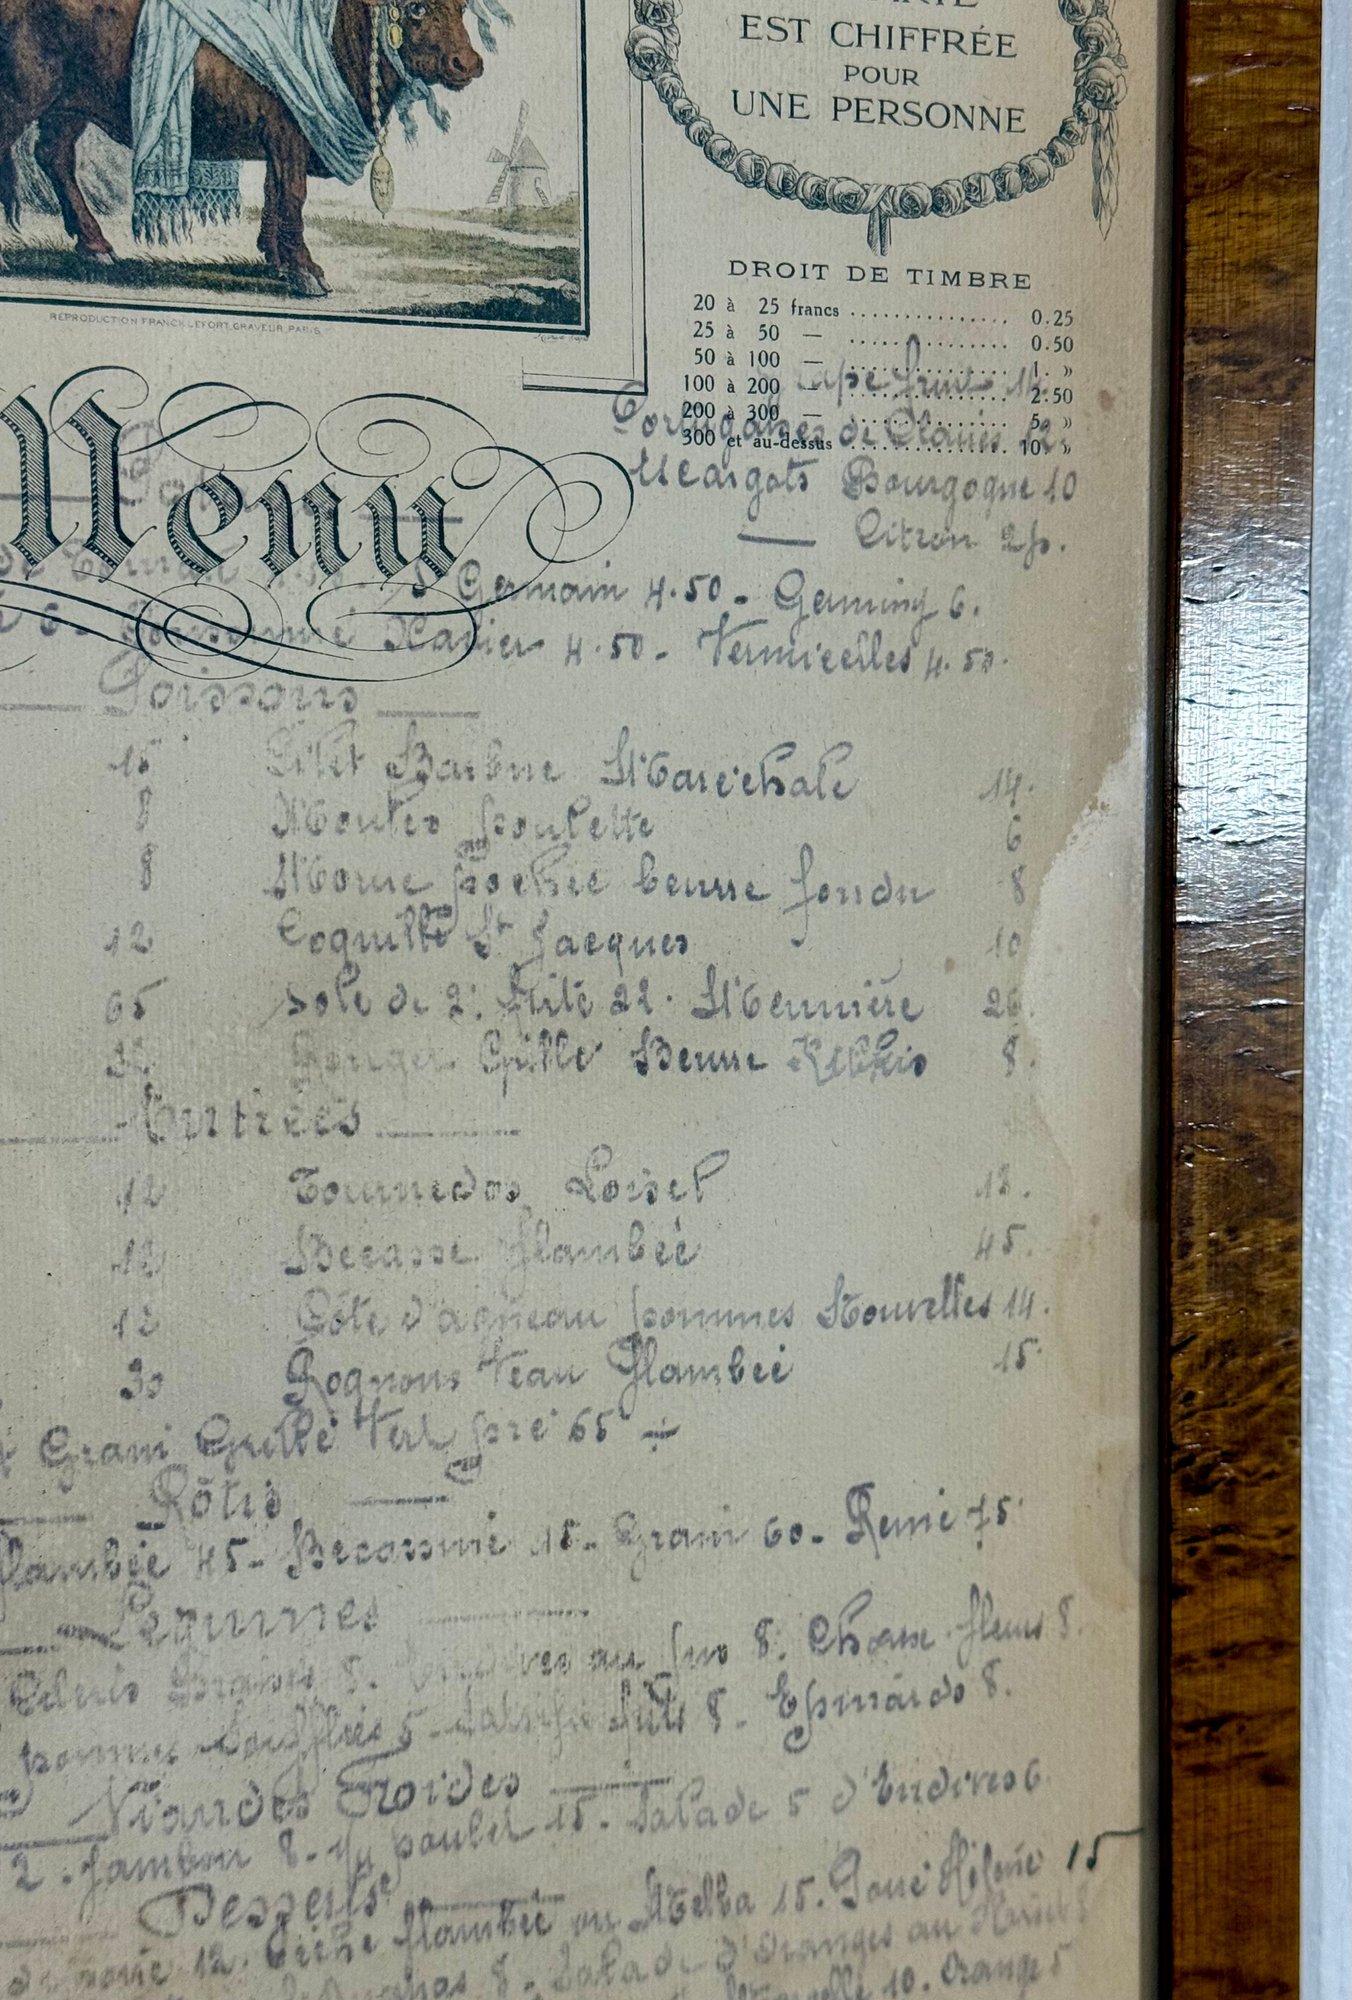 EST CHIFFRÉE
POUR
UNE PERSONNE
REPRODUCTION FRANCK LEFORT, GRAVEUR, PARIS
DROIT DE TIMBRE
20 à 25 francs ............... 0.25
25 à 50 — ............... 0.50
50 à 100 — ............... 1. »
100 à 200 — ............... 2.50
200 à 300 — ............... 5 »
300 et au-dessus ............... 10 »
Menu
fruit
Portugaises de Claires 12.
Escargots Bourgogne 10
— Citron 2 p.
St Germain 4.50 - Germiny 6.
Xavier 4.50 - Vermicelles 4.50.
Poissons
15 Filet Barbue Maréchale 14.
8 Moules poulette 6
8 Morue pochée beurre fondu 8
12 Coquille St Jacques 10
65 Sole de 2: Frite 22. Meunière 26.
Rouget Grillé Beurre 8.
Entrées
12 Tournedos Loisel 12.
12 Becasse flambée 45.
12 Côte d'agneau pommes Nouvelles 14.
30 Rognons Veau Flambée 15.
Grain Grillé Vert pré 65 ÷
Rôtis
flambée 45 - Becassine 15 - Grain 60 - Reine 75
Légumes
Celeris 8. Endives au jus 8. Choux-fleurs 8.
pommes Soufflées 5 - Salsifis frits 8 - Epinards 8.
Viandes Froides
2. Jambon 8 - 1/4 poulet 15 - Salade 5 d'Endives 6
Desserts
12. Pêche flambée ou Melba 15. Poire Hélène 15
8. Salade d'Oranges au
10. Orange 5